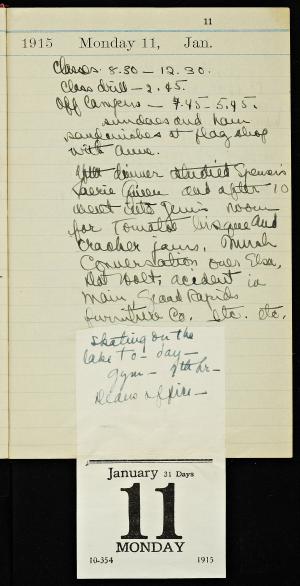 11
1915 Monday 11, Jan.
Classes 8.30 – 12.30.
Class drill – 2.45.
Off Campus – 4.45 – 5.45.
sundaes and ham
sandwiches at flag shop
with Anne.
After dinner studied Spenser's
Faerie Queen and after 10
went into Jem's room
for Tomato bisque and
cracker jams. Much
Conversation over Elsa,
Dot Holt, accident in
Main, Grand Rapids
furniture Co. Etc. etc.
skating on the
lake to-day –
gym – 4th hr –
Deans office –
January 31 Days
11
MONDAY
10-354 1915